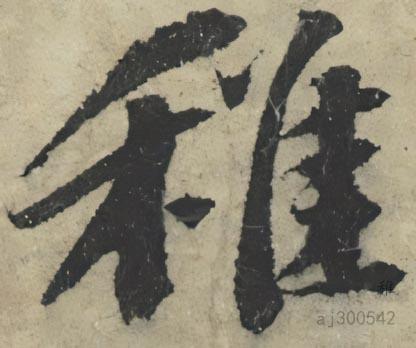 稚
稚
aj300542